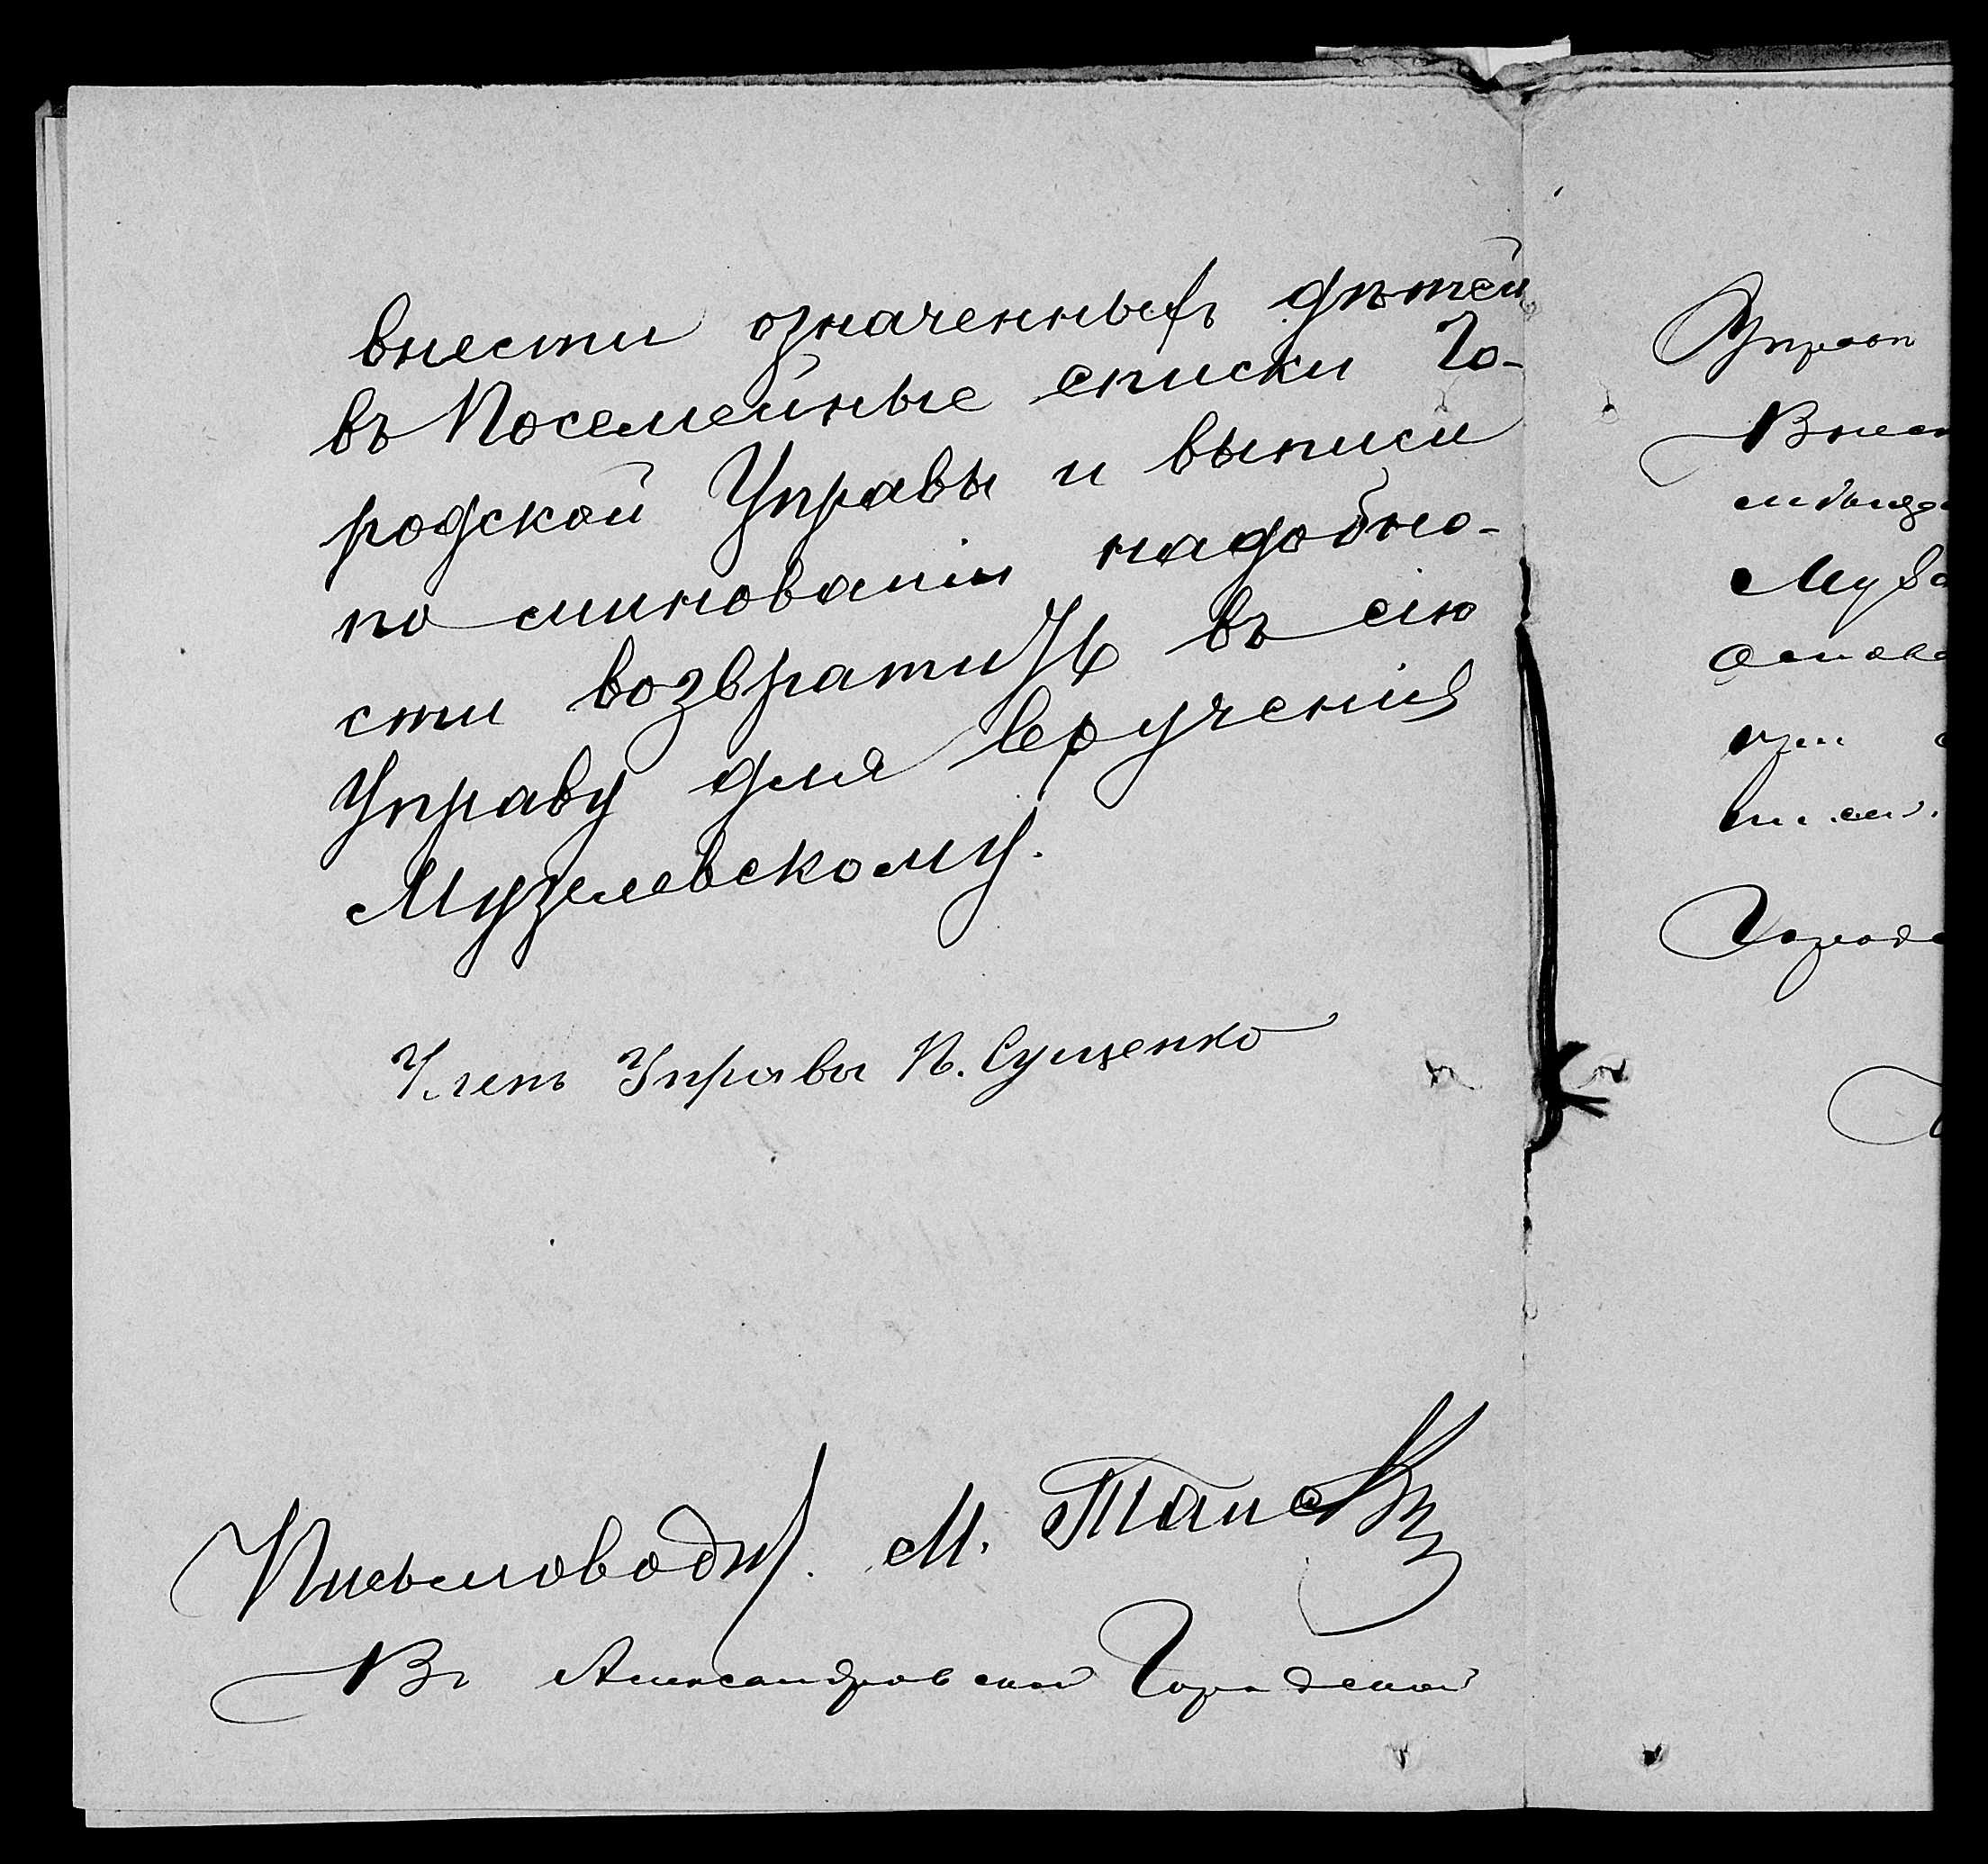 внести означенныхъ дѣтей
въ Посемейные списки Го-
родской Управы и выписи
по миновании надобно-
сти возвратить въ сію
Управу для врученія
Музелевскому.
Членъ Управы П. Сущенко
Письмоводит. М.
Въ Александровской Городской
Управ
Внес
Музе
при
Городс